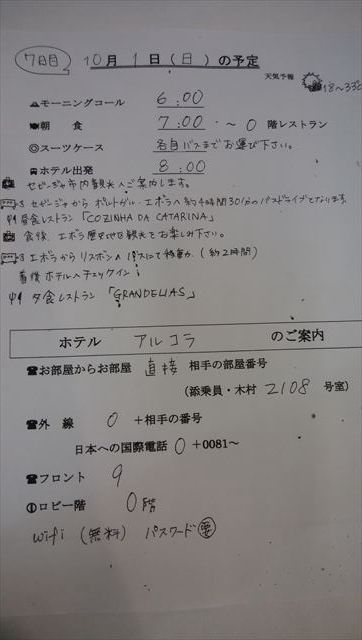 7日目 10月 1日(日)の予定
天気予報 18~33℃
モーニングコール 6:00
朝食 7:00 ~ 0 階レストラン
スーツケース 各自バスまでお運び下さい。
ホテル出発 8:00
セビージャ市内観光へご案内します。
セビージャから ポルトガル・エボラへ約4時間30分のバスドライブとなります。
昼食レストラン「COZINHA DA CATARINA」
食後、エボラ歴史地区観光をお楽しみ下さい。
エボラからリスボンへバスにて移動。(約2時間)
着後ホテルへチェックイン
夕食レストラン「GRANDELIAS」
ホテル アルコラ のご案内
☎お部屋からお部屋 直接 相手の部屋番号
(添乗員・木村 2108 号室)
☎外 線 0 +相手の番号
日本への国際電話 0 +0081~
☎フロント 9
ロビー階 0階
wifi (無料) パスワード要